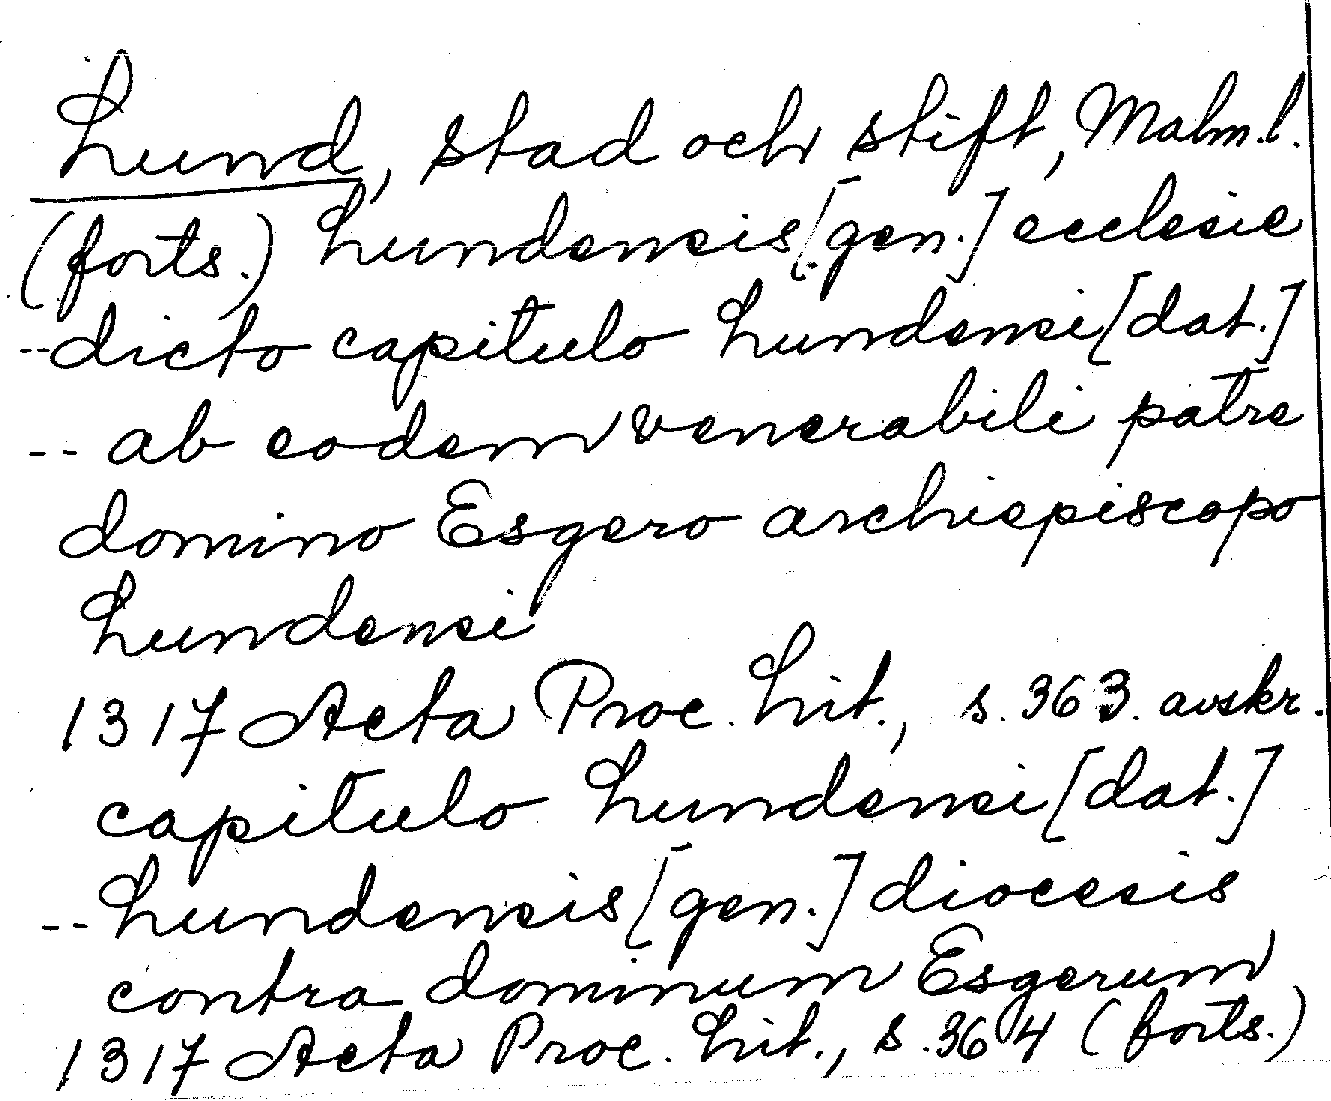 Lund, stad och stift, Malm.l.
(forts.) Lundensis [gen.] ecclesie
-- dicto capitulo Lundensi [dat.]
-- ab eodem venerabili patre
domino Esgero archiepiscopo
Lundensi
1317 Acta Proc. Lit., s. 363. avskr.
capitulo Lundensi [dat.]
-- Lundensis [gen.] diocesis
contra dominum Esgerum
1317 Acta Proc. Lit., s. 364 (forts.)